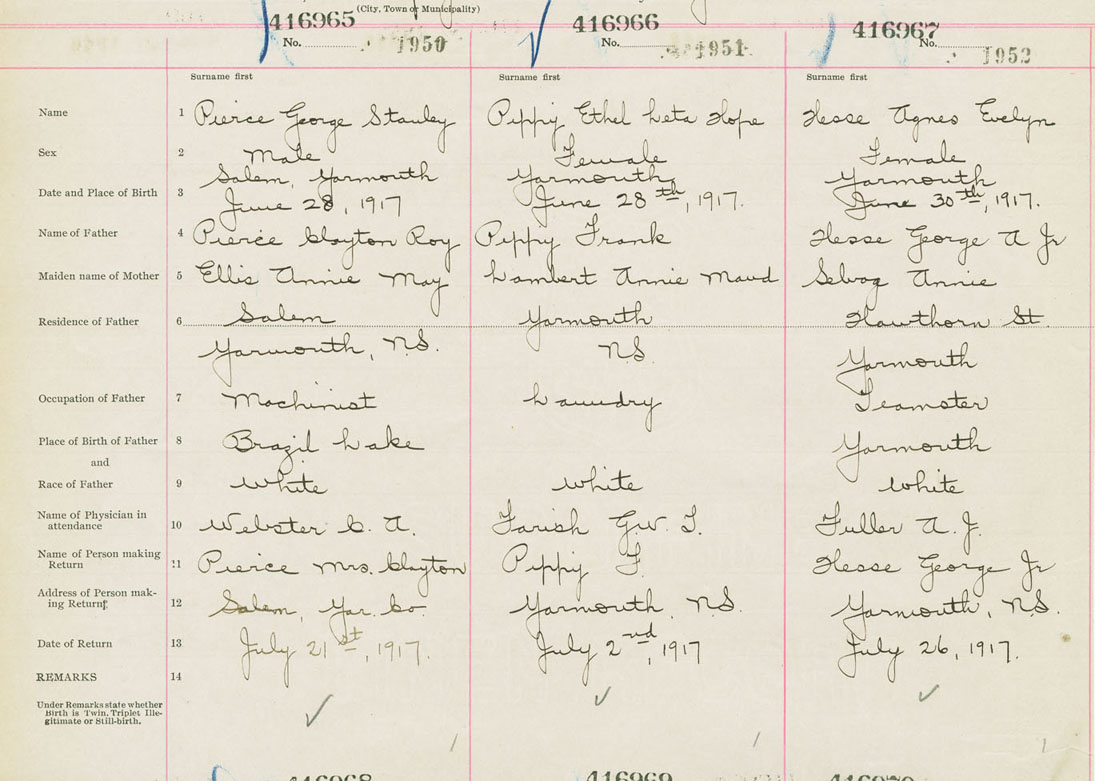 (City, Town or Municipality)
416965 416966 416967
No. 1950 No. 1951 No. 1952
Surname first Surname first Surname first
Name 1 Pierce George Stanley Pippy Ethel Leta Hope Hesse Agnes Evelyn
Sex 2 Male Female Female
Salem, Yarmouth Yarmouth, Yarmouth
Date and Place of Birth 3 June 28, 1917 June 28th, 1917. June 30th, 1917.
Name of Father 4 Pierce Clayton Roy Pippy Frank Hesse George A Jr
Maiden name of Mother 5 Ellis Annie May Lambert Annie Maud Selvog Annie
Residence of Father 6 Salem Yarmouth Hawthorn St.
Yarmouth, N.S. N.S. Yarmouth
Occupation of Father 7 Machinist Laundry Teamster
Place of Birth of Father 8 Brazil Lake Yarmouth
and
Race of Father 9 White White White
Name of Physician in
attendance 10 Webster C. A. Farish G.W. T. Fuller A. J.
Name of Person making
Return 11 Pierce Mrs. Clayton Pippy F. Hesse George Jr
Address of Person mak-
ing Return 12 Salem, Yar. Co. Yarmouth, N.S. Yarmouth, N.S.
Date of Return 13 July 21st, 1917. July 2nd, 1917 July 26, 1917.
REMARKS 14
Under Remarks state whether
Birth is Twin, Triplet Ille-
gitimate or Still-birth.
416968 416969